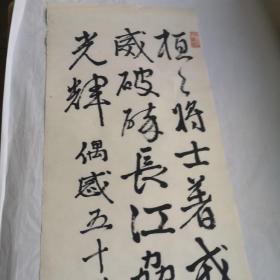 桓々将士著戎
威破碎長江
光輝偶感五十